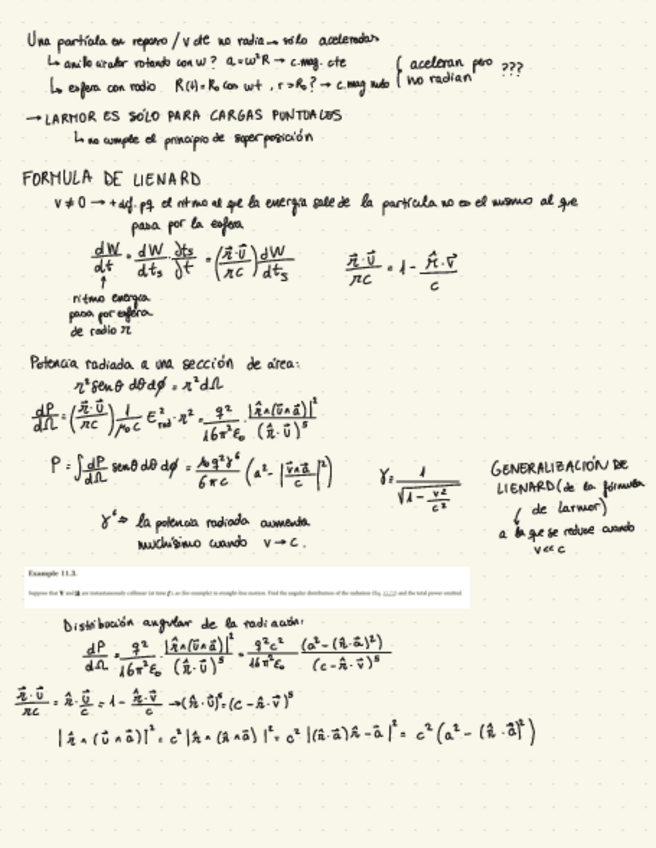 Una partícula en reposo / v cte no radia → sólo aceleradas
↳ anillo circular rotando con w? a = ω²R → c.mag. cte
↳ esfera con radio R(t) = R₀ cos wt, r > R₀? → c.mag nulo { aceleran pero no radian ???
→ LARMOR ES SOLO PARA CARGAS PUNTUALES
↳ no cumple el principio de superposición
FORMULA DE LIENARD
v ≠ 0 → + dif. pq el ritmo al que la energía sale de la partícula no es el mismo al que
pasa por la esfera
dW/dt = dW/dts · ∂ts/∂t = (r⃗·u⃗/rc) dW/dts      r⃗·u⃗/rc = 1 - r̂·v⃗/c
↑
ritmo energía
pasa por esfera
de radio r
Potencia radiada a una sección de área:
r² senθ dθ dϕ = r² dΩ
dP/dΩ = (r⃗·u⃗/rc) 1/μ₀c E²rad · r² = q²/16π²ε₀ · |r̂∧(u⃗∧a⃗)|²/(r̂·u⃗)⁵
P = ∫ dP/dΩ senθ dθ dϕ = μ₀q²γ⁶/6πc (a² - |v⃗∧a⃗/c|²)      γ = 1/√(1 - v²/c²)
GENERALIZACIÓN DE
LIENARD (de la fórmula
de Larmor)
a la que se reduce cuando
v << c
γ⁶ ⇒ la potencia radiada aumenta
muchísimo cuando v → c.
Example 11.3.
Suppose that v and a are instantaneously collinear (at time tr), as (for example) in straight-line motion. Find the angular distribution of the radiation (Eq. 11.72) and the total power emitted.
Distribución angular de la radiación:
dP/dΩ = q²/16π²ε₀ |r̂∧(u⃗∧a⃗)|²/(r̂·u⃗)⁵ = q²c²/16π²ε₀ (a² - (r̂·a⃗)²)/(c - r̂·v⃗)⁵
r⃗·u⃗/rc = r̂·u⃗/c = 1 - r̂·v⃗/c → (r̂·u⃗)⁵ = (c - r̂·v⃗)⁵
|r̂∧(u⃗∧a⃗)|² = c²|r̂∧(r̂∧a⃗)|² = c²|(r̂·a⃗)r̂ - a⃗|² = c²(a² - (r̂·a⃗)²)